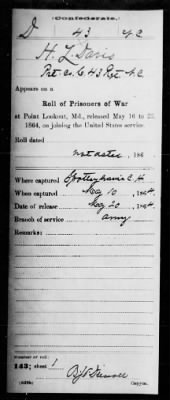 Confederate.
D 43 N.C.
H. L. Davis
Pvt. Co. C, 43 Reg. N.C.
Appears on a
Roll of Prisoners of War
at Point Lookout, Md., released May 16 to 22,
1864, on joining the United States service.
Roll dated
not dated, 186
Where captured Spottsylvania C. H.
When captured May 10, 1864.
Date of release May 20, 1864.
Branch of service army
Remarks:
Number of roll:
143; sheet 1
Copyist.